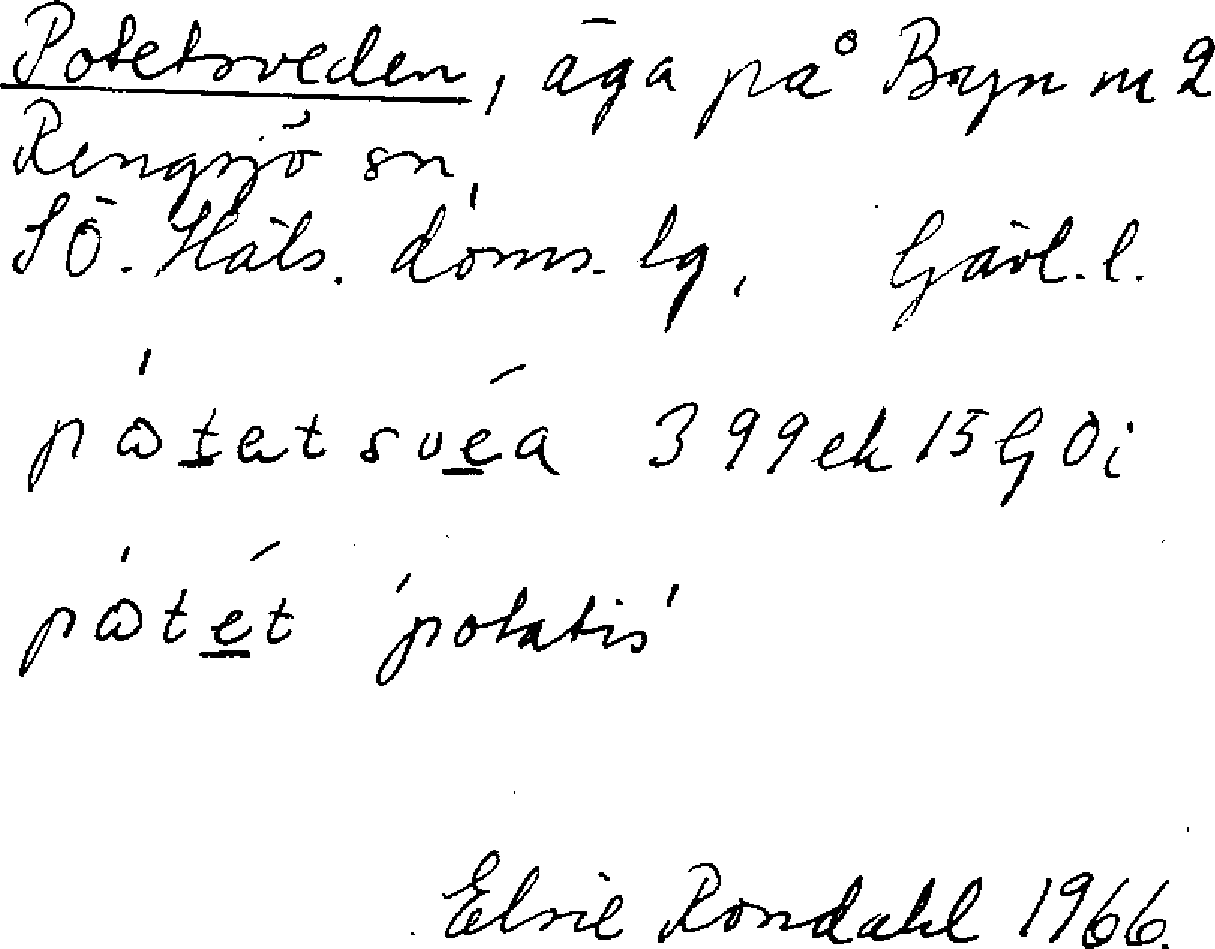 Potetsveden, äga på Byn nr 2
Rengsjö sn,
SÖ. Häls. doms. lg, Gävl. l.
pòtetsvéa 399 ek 15 G Oi
pòtét 'potatis'
Elsie Rondahl 1966.